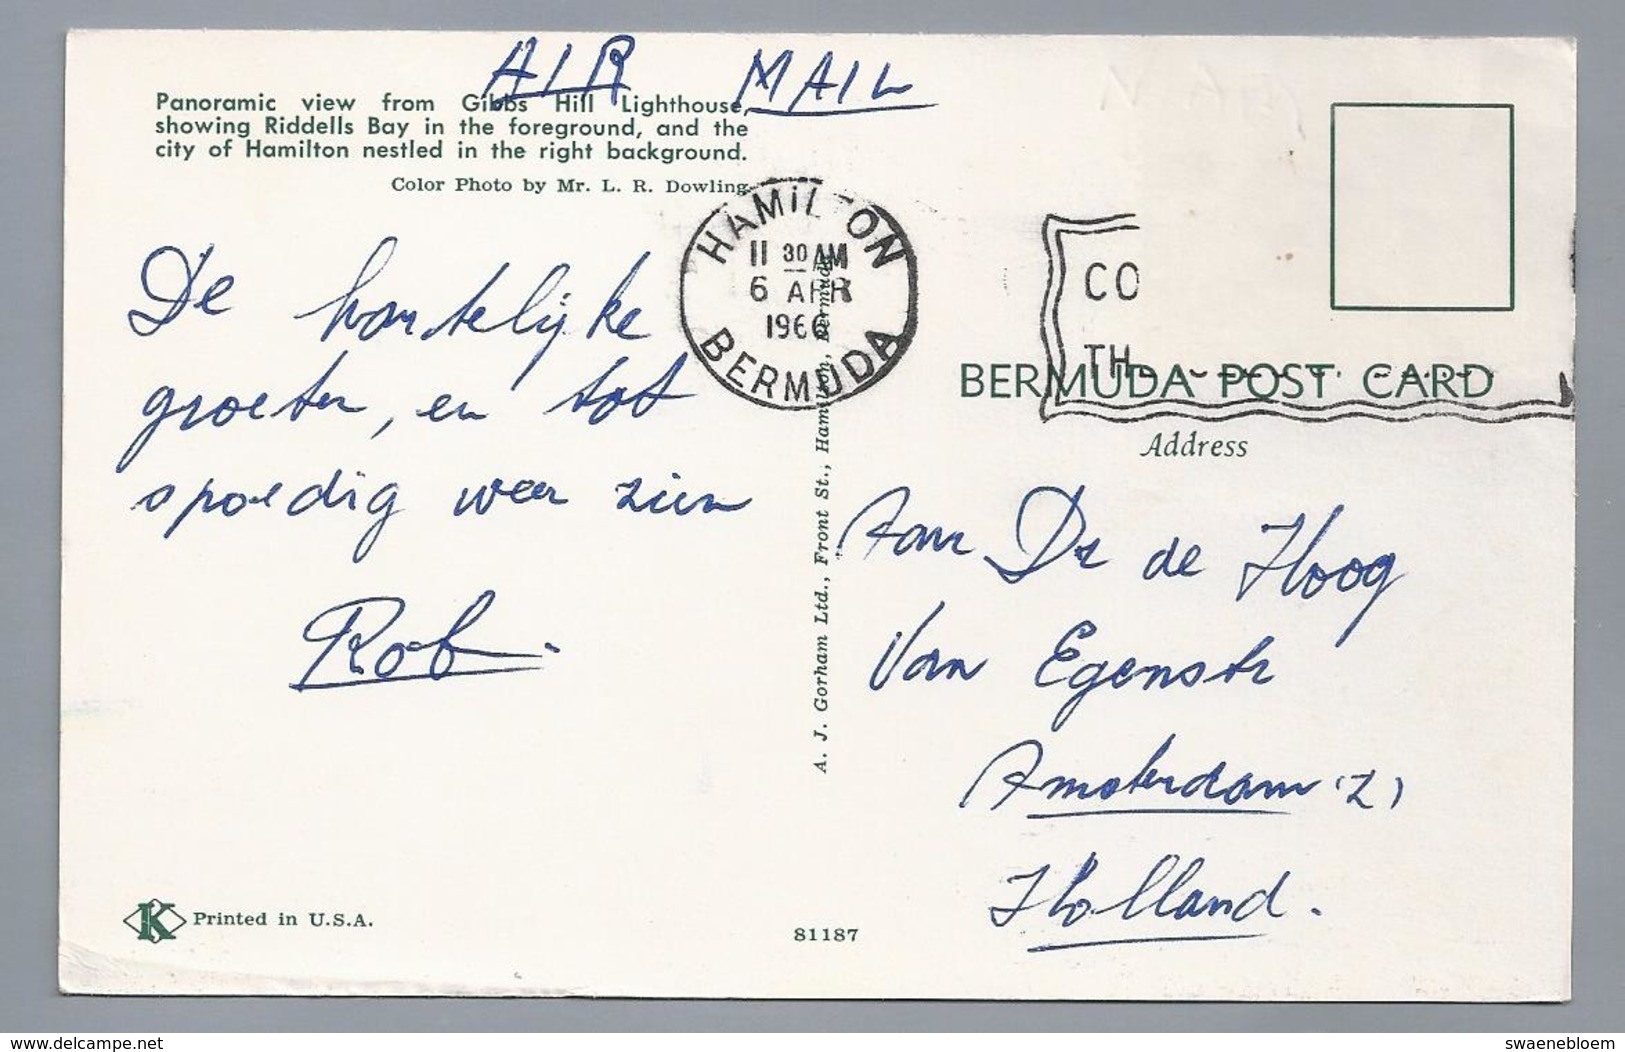 AIR MAIL
Panoramic view from Gibbs Hill Lighthouse,
showing Riddells Bay in the foreground, and the
city of Hamilton nestled in the right background.
Color Photo by Mr. L. R. Dowling
HAMILTON
11 30 AM
6 APR
1966
BERMUDA
CO
TH
De hartelijke
groeten, en tot
spoedig weer zien
Rob.
A. J. Gorham Ltd., Front St., Hamilton, Bermuda
BERMUDA POST CARD
Address
Aan Dr de Hoog
Van Egenstr
Amsterdam (Z)
Holland.
K Printed in U.S.A.
81187
www.delcampe.net
swaenebloem